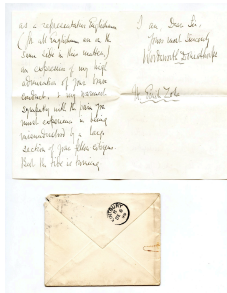 as a representative Englishman
(for all Englishmen are on the
same side in this matter)
an expression of my high
admiration of your brave
conduct, & my warmest
sympathy with the pain you
must experience in being
misunderstood by a large
section of your fellow citizens.
But the tide is turning
I am, Dear Sir,
Yours most sincerely
Wordsworth Donisthorpe
M. Emile Zola